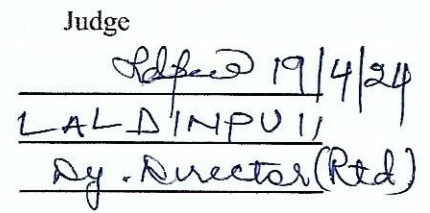 Judge
19/4/24
LALDINPUII
Dy. Director (Rtd)